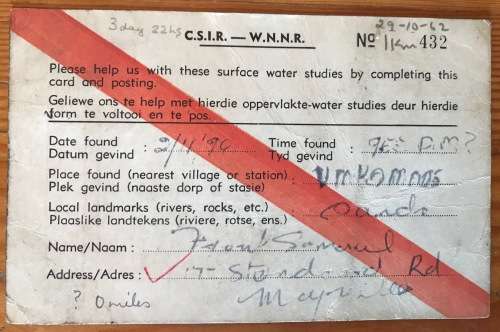 3 day 22hs
29-10-62
C.S.I.R. — W.N.N.R.
No 11Km 432
Please help us with these surface water studies by completing this
card and posting.
Geliewe ons te help met hierdie oppervlakte-water studies deur hierdie
vorm te voltooi en te pos.
Date found
Datum gevind
Time found
Tyd gevind
P.M?
Place found (nearest village or station)
Plek gevind (naaste dorp of stasie)
Local landmarks (rivers, rocks, etc.)
Plaaslike landtekens (riviere, rotse, ens.)
Name/Naam :
Address/Adres :
Rd
? 0 miles